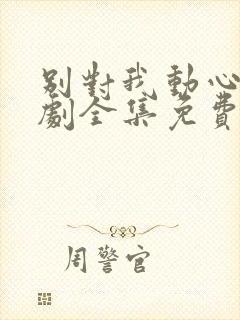 別對我動心
劇全集免費
周警官